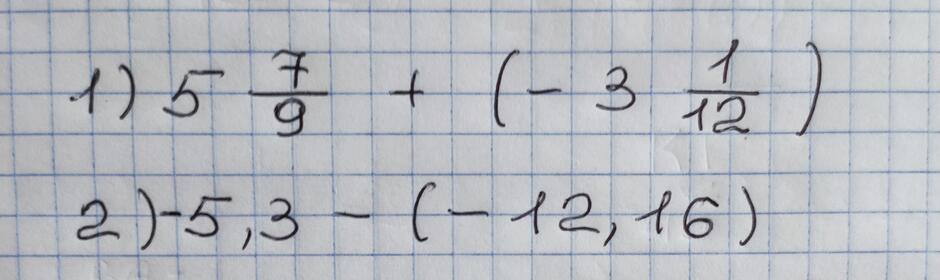 1) 5 7/9 + (- 3 1/12)
2) -5,3 - (-12,16)